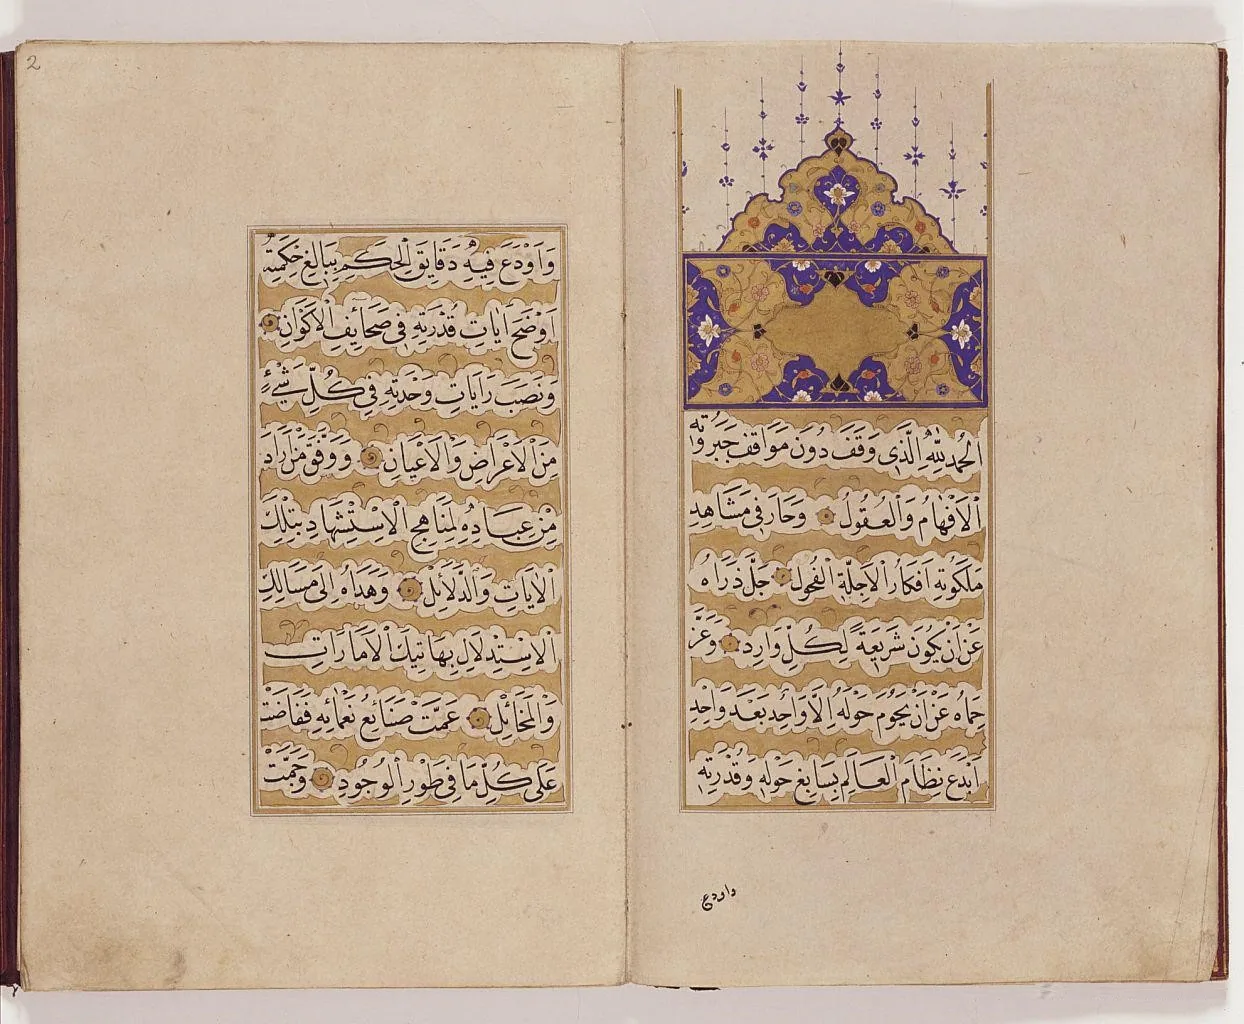 الحمد لله الذى وقف دون مواقف جبروته
الافهام والعقول وحار فى مشاهد
ملكوته افكار الاجلة الفحول جل ذراه
عن ان يكون شريعة لكل وارد وعز
حماه عن ان يحوم حوله الا واحد بعد واحد
ابدع نظام العالم بسابغ حوله وقدرته
واودع
2
واودع فيه دقايق الحكم ببالغ حكمته
اوضح ايات قدرته فى صحائف الاكوان
ونصب رايات وحدته فى كل شئ
من الاعراض والاعيان ووفق من اراد
من عباده لمناهج الاستشهاد بتلك
الايات والدلائل وهداه الى مسالك
الاستدلال بهاتيك الامارات
والمخائل عمت صنائع نعمائه ففاضت
على كل ما فى طور الوجود وجمت